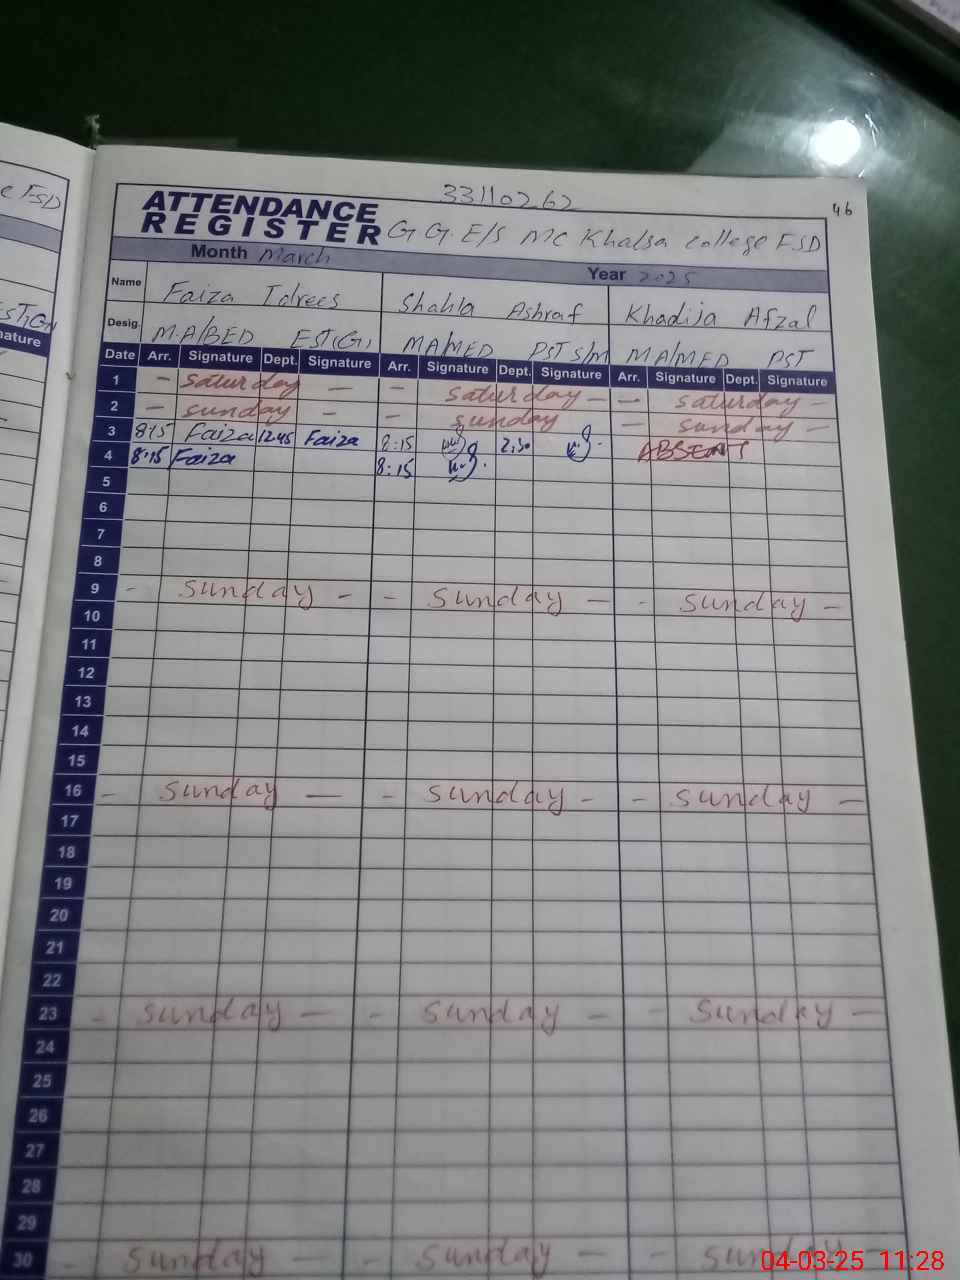 33110262
46
ATTENDANCE
REGISTER
G G. E/S MC Khalsa College FSD
Month March Year 2025
Name Faiza Idrees Shahla Ashraf Khadija Afzal
Desig. M.A/BED EST(G) MA/MED PST S/M MA/MED PST
Date Arr. Signature Dept. Signature Arr. Signature Dept. Signature Arr. Signature Dept. Signature
1 - saturday - - saturday - - saturday -
2 - sunday - - sunday - sunday -
3 8:15 Faiza 12:45 Faiza 8:15 2:30 ABSENT
4 8:15 Faiza 8:15
5
6
7
8
9 - sunday - - sunday - - sunday -
10
11
12
13
14
15
16 - sunday - - sunday - - sunday -
17
18
19
20
21
22
23 - sunday - - sunday - - sunday -
24
25
26
27
28
29
30 - sunday - - sunday - - sunday
04-03-25 11:28